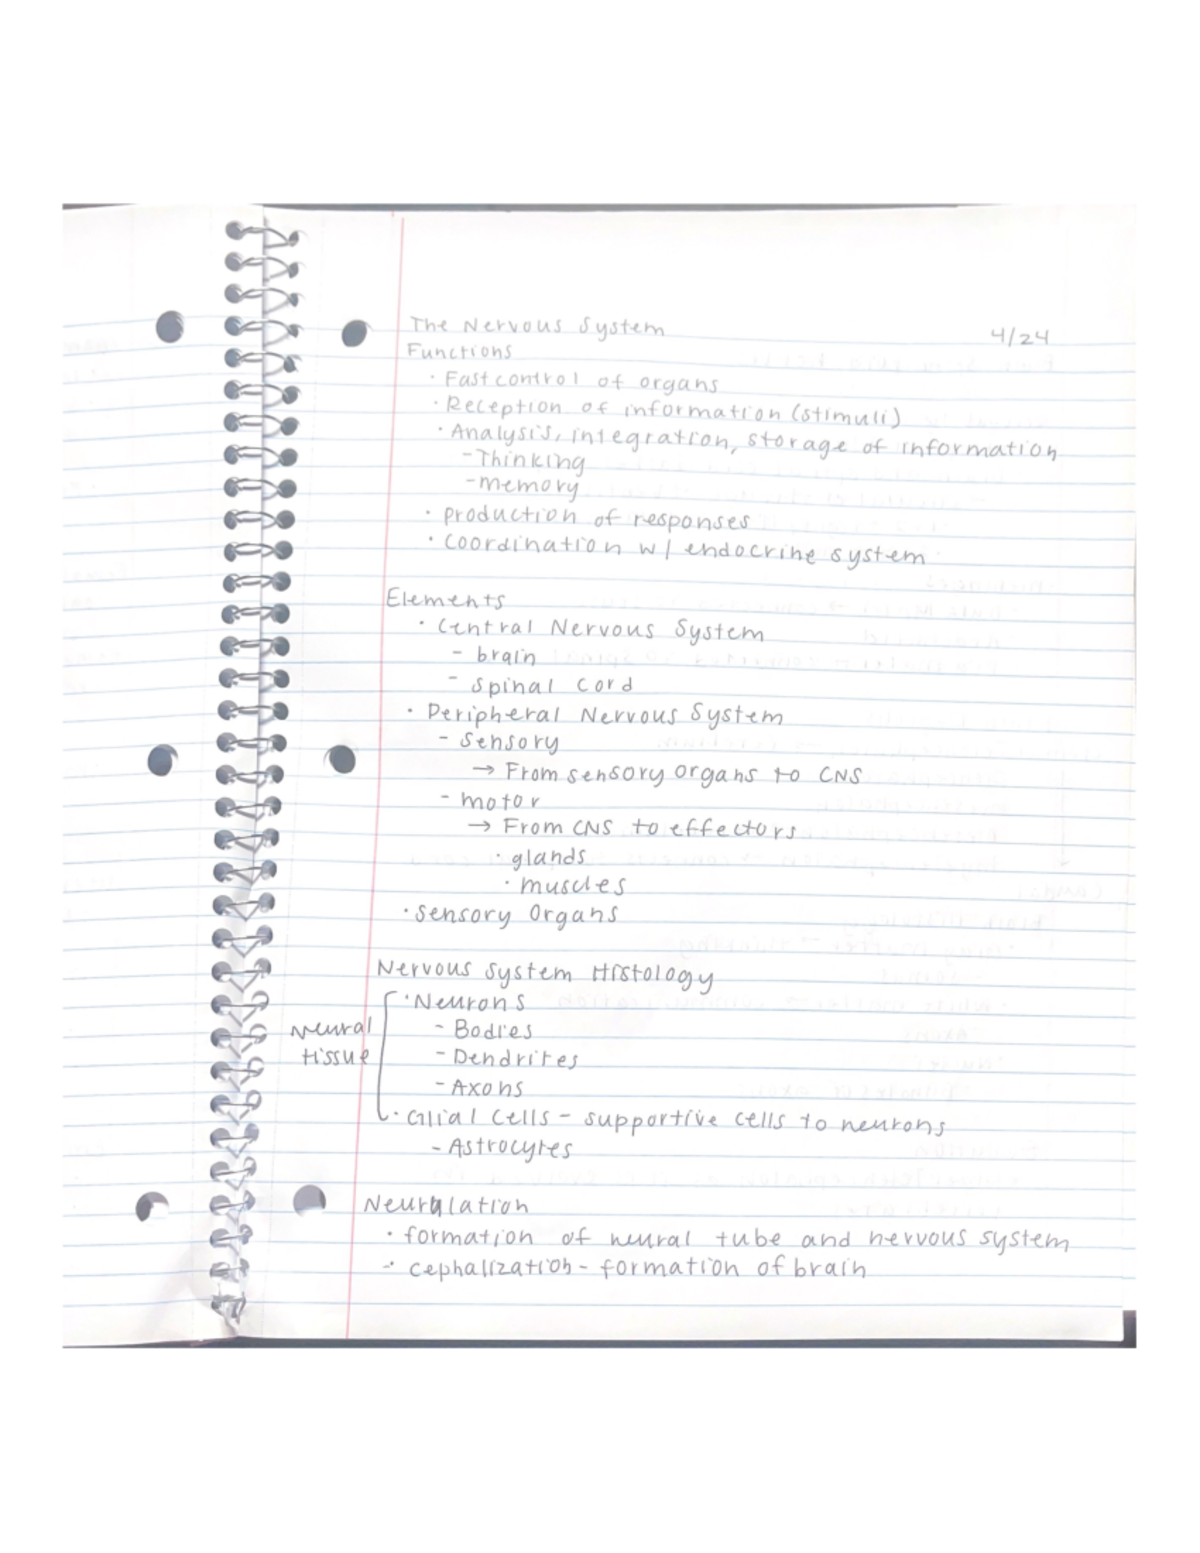 The Nervous System 4/24
Functions
· Fast control of organs
· Reception of information (stimuli)
· Analysis, integration, storage of information
- Thinking
- memory
· production of responses
· coordination w/ endocrine system
Elements
· Central Nervous System
- brain
- spinal cord
· Peripheral Nervous System
- sensory
→ From sensory organs to CNS
- motor
→ From CNS to effectors
· glands
· muscles
· sensory organs
Nervous system Histology
Neural tissue
· Neurons
- Bodies
- Dendrites
- Axons
· Glial cells - supportive cells to neurons
- Astrocytes
Neurulation
· formation of neural tube and nervous system
· cephalization - formation of brain